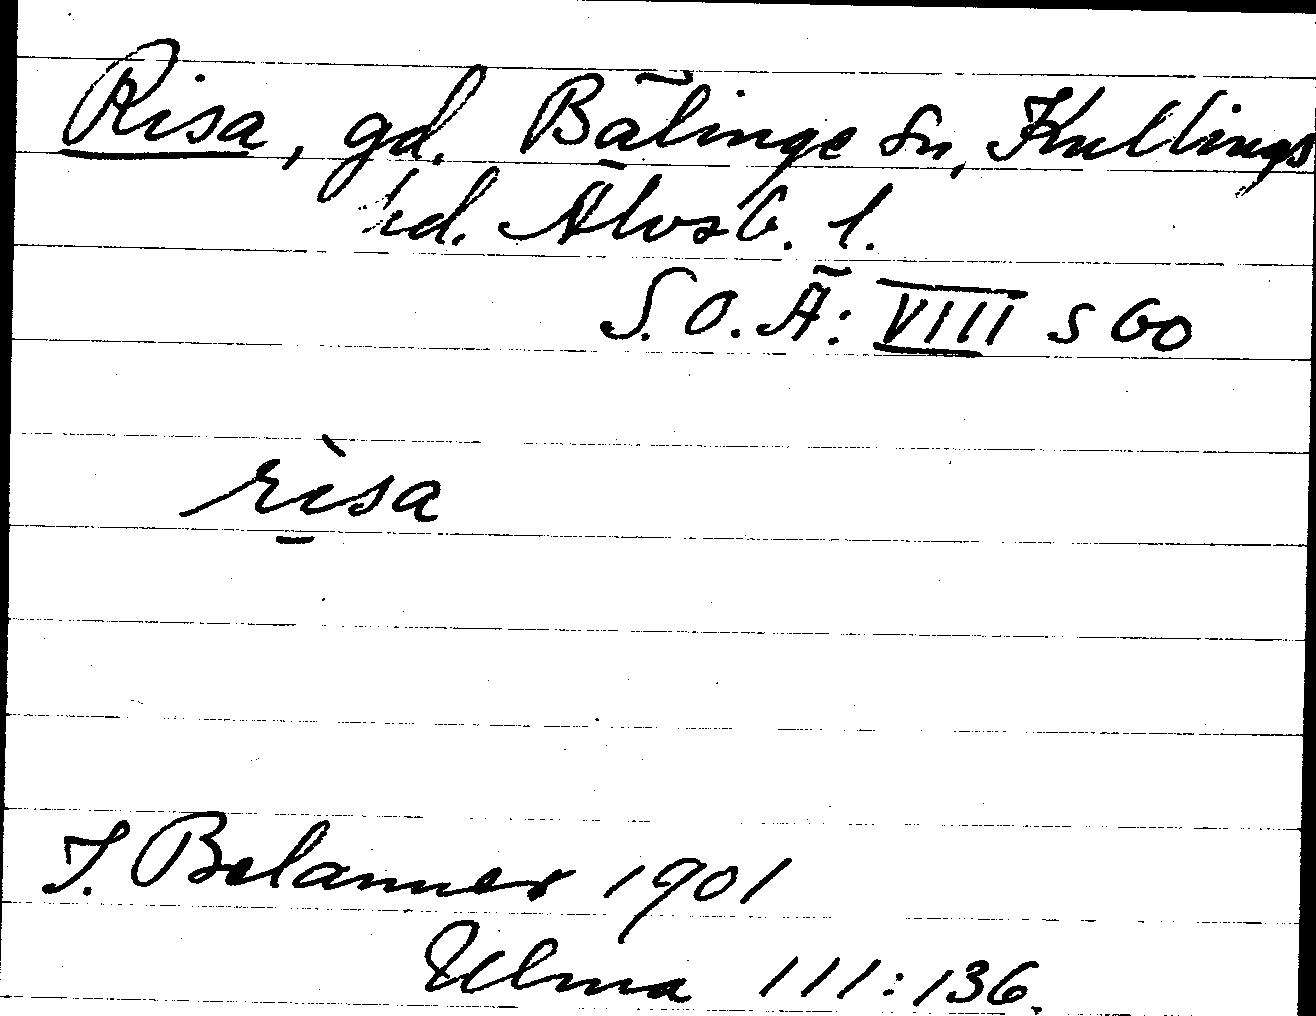 Risa, gd. Bälinge sn, Kullings
hd. Älvsb. l.
S.O.Ä: VIII s 60
rìsa
J. Belanner 1901
Ulma 111:136.